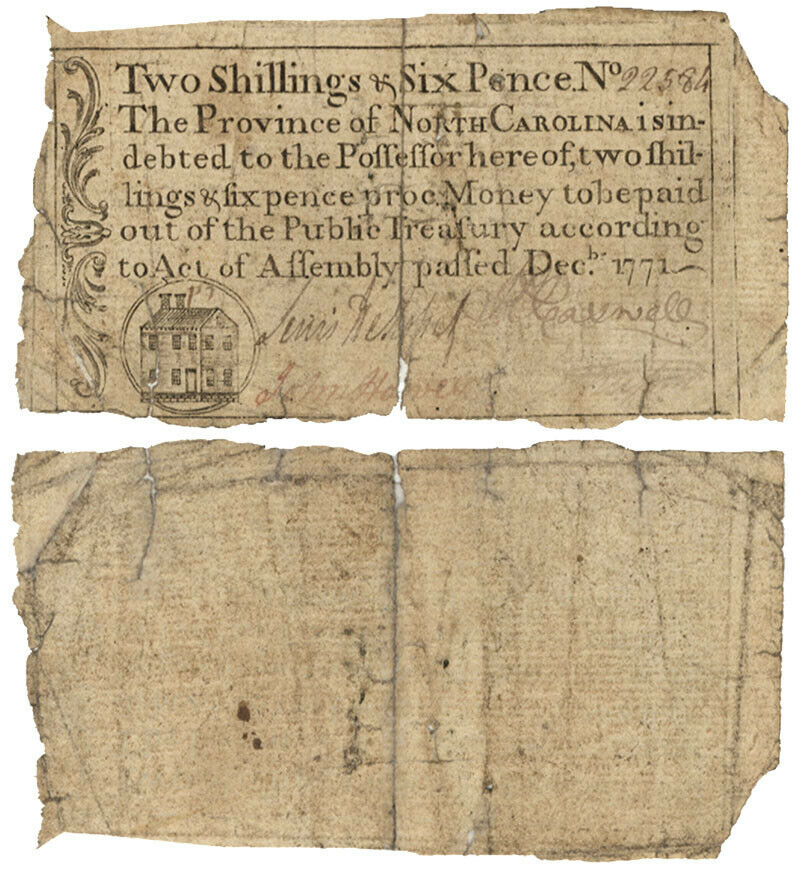 Two Shillings & Six Pence. No 22584
The Province of NORTH CAROLINA is in-
debted to the Poſſeſſor hereof, two ſhil-
lings & ſix pence proc. Money to be paid
out of the Public Treaſury according
to Act of Aſſembly paſſed Decbr. 1771
Lewis De Rosset Rd Caswell
John